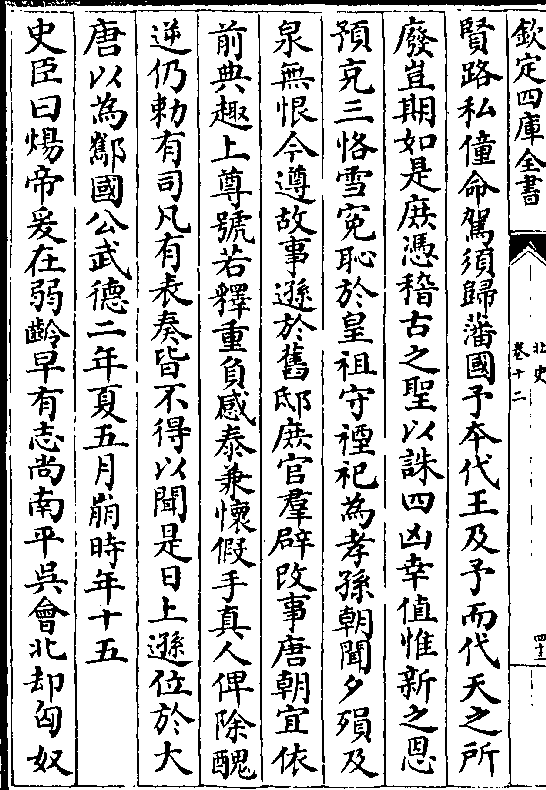 欽定四庫全書
北史
卷十二
四十三
賢路私僮命駕須歸藩國予本代王及予而代天之所
廢豈期如是庶憑稽古之聖以誅四凶幸值惟新之恩
預充三恪雪寃恥於皇祖守禋祀為孝孫朝聞夕殞及
泉無恨今遵故事遜於舊邸庶官羣辟改事唐朝宜依
前典趣上尊號若釋重負感泰兼懷假手真人俾除醜
逆仍勅有司凡有表奏皆不得以聞是日上遜位於大
唐以為酅國公武德二年夏五月崩時年十五
史臣曰煬帝爰在弱齡早有志尚南平吳會北却匈奴